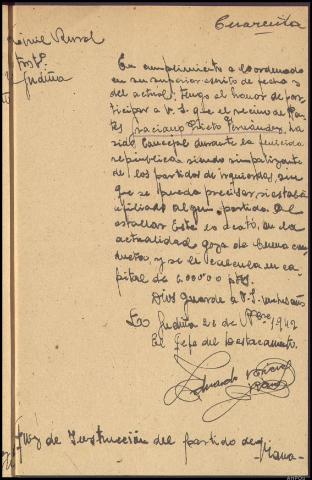 Cuarenta
Rural
Gudiña
En cumplimiento a lo ordenado
en su superior escrito de fecha
del actual, tengo el honor de par-
ticipar a V. S. que el vecino de
Graciano Prieto Fernández, ha
sido Concejal durante la
republica, siendo simpatizante
de los partidos de izquierdas, sin
que se pueda precisar, si estaba
afiliado algun partido. Al
estallar este lo dejó, en la
actualidad goza de buena con-
ducta, y se le calcula en ca-
pital de 6,000'00 pts.
Dios guarde a V. S. muchos años
La Gudiña 28 de 1942
El Jefe del Destacamento.
Eduardo
Juez de Instrucción del partido de
Viana-